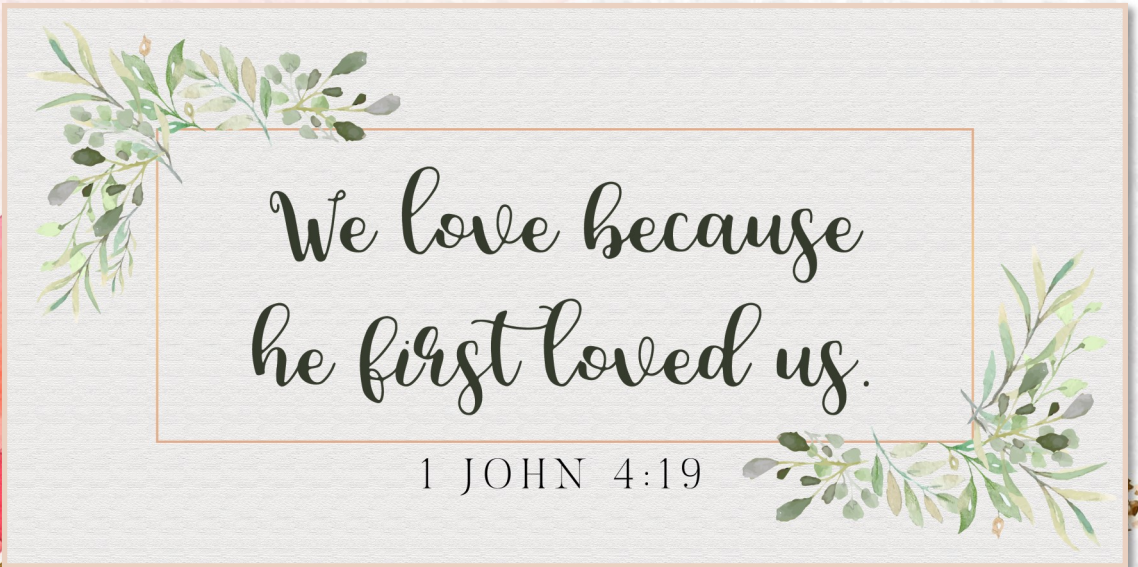 We love because
he first loved us.
1 JOHN 4:19